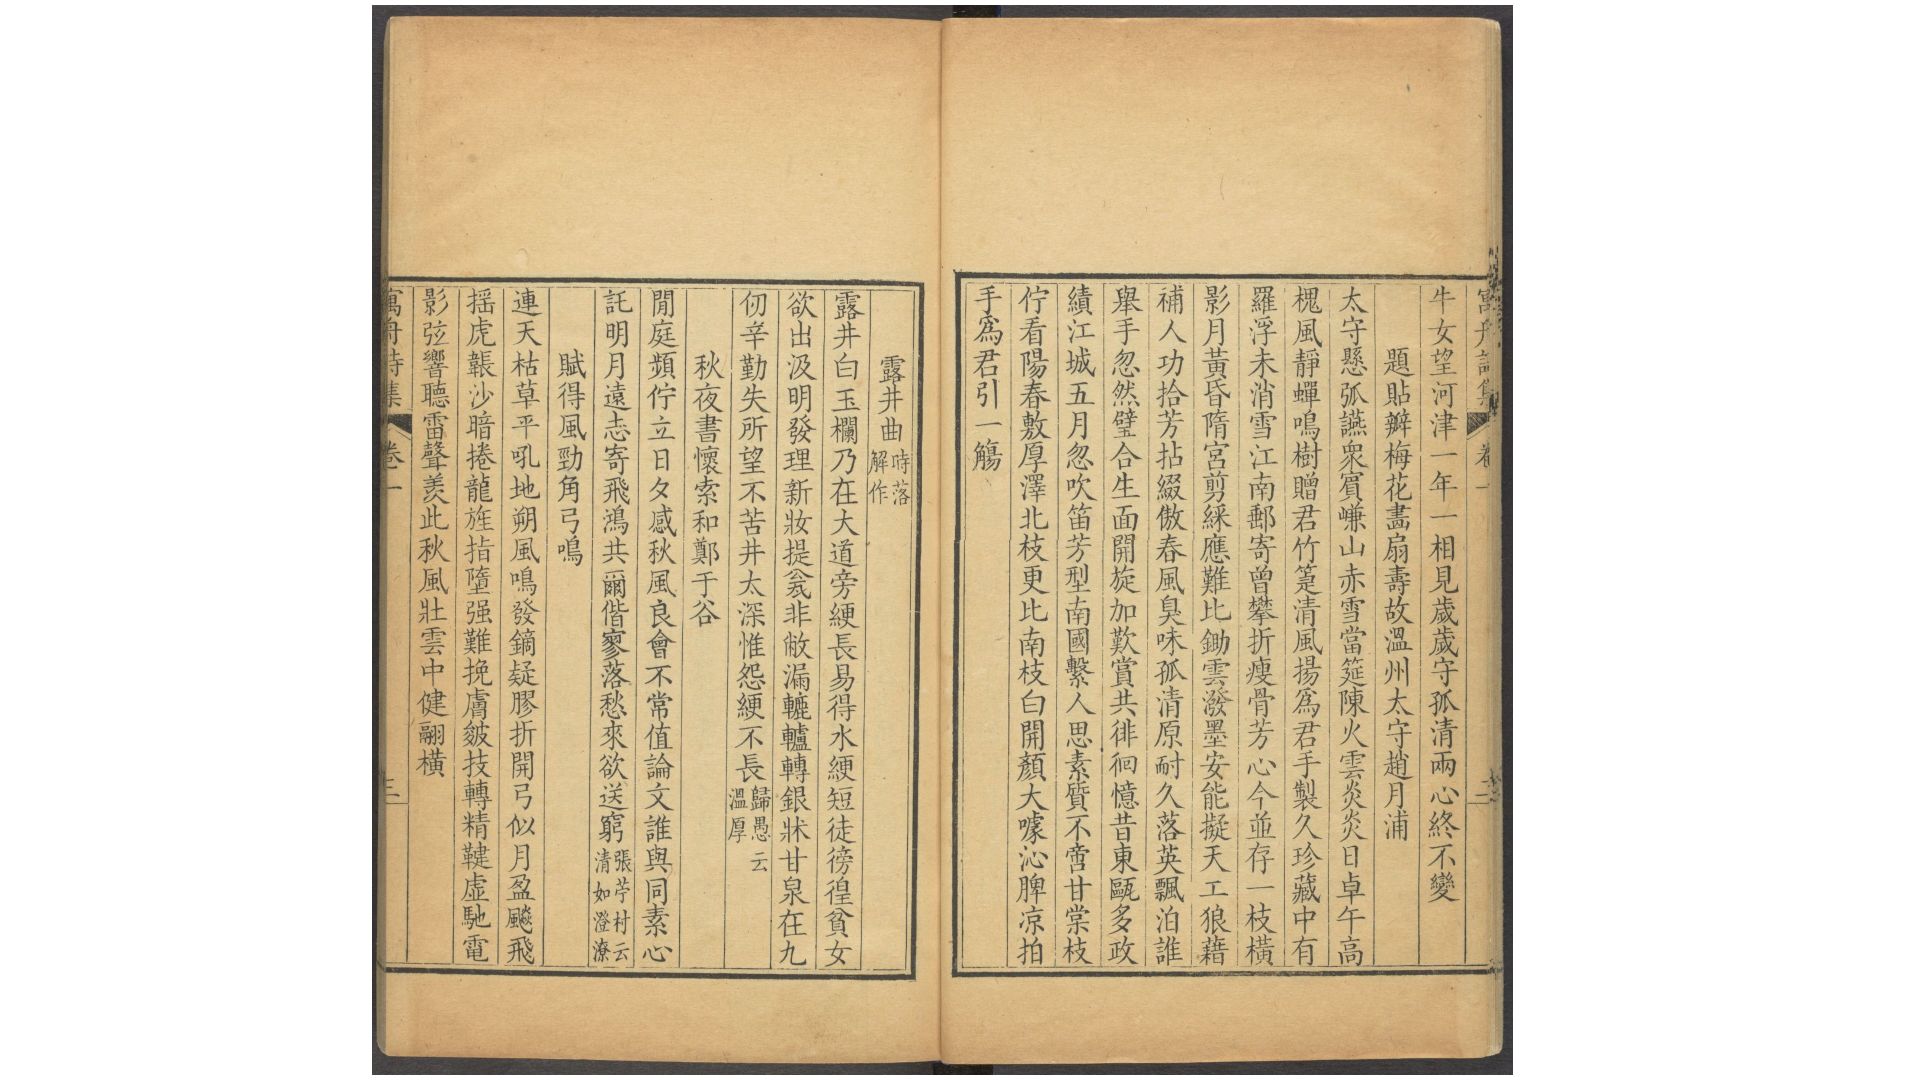 寓舟詩集 卷一 二
牛女望河津一年一相見歲歲守孤清兩心終不變
題貼瓣梅花畵扇壽故溫州太守趙月浦
太守懸弧讌衆賓㠓山赤雪當筵陳火雲炎炎日卓午高
槐風靜蟬鳴樹贈君竹箑清風揚爲君手製久珍藏中有
羅浮未消雪江南郵寄曾攀折瘦骨芳心今並存一枝橫
影月黃昏隋宮剪綵應難比鋤雲潑墨安能擬天工狼藉
補人功拾芳拈綴傲春風臭味孤清原耐久落英飄泊誰
舉手忽然璧合生面開旋加歎賞共徘徊憶昔東甌多政
績江城五月忽吹笛芳型南國繫人思素質不啻甘棠枝
佇看陽春敷厚澤北枝更比南枝白開顏大噱沁脾凉拍
手爲君引一觴
露井曲 時落解作
露井白玉欄乃在大道旁綆長易得水綆短徒徬徨貧女
欲出汲明發理新妝提瓮非敝漏轆轤轉銀牀甘泉在九
仞辛勤失所望不苦井太深惟怨綆不長 歸愚云溫厚
秋夜書懷索和鄭于谷
閒庭頻佇立日夕感秋風良會不常值論文誰與同素心
託明月遠志寄飛鴻共爾偕寥落愁來欲送窮 張苧村云清如澄潦
賦得風勁角弓鳴
連天枯草平吼地朔風鳴發鏑疑膠折開弓似月盈飈飛
摇虎韔沙暗捲龍旌指墮强難挽膚皴技轉精鞬虛馳電
影弦響聽雷聲羨此秋風壯雲中健翮橫
寓舟詩集 卷一 三